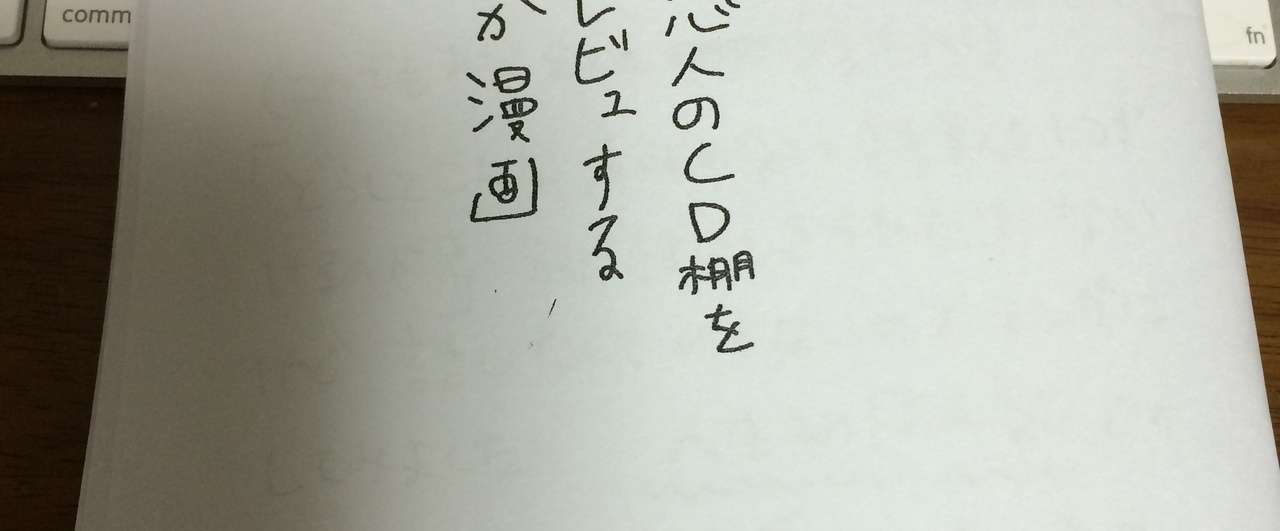 comm
fn
恋人のCD棚を
レビュする
漫画」